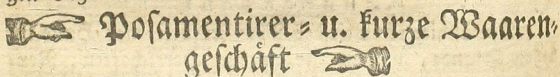 Poſamentirer⸗ u. kurze Waaren⸗
geſchäft